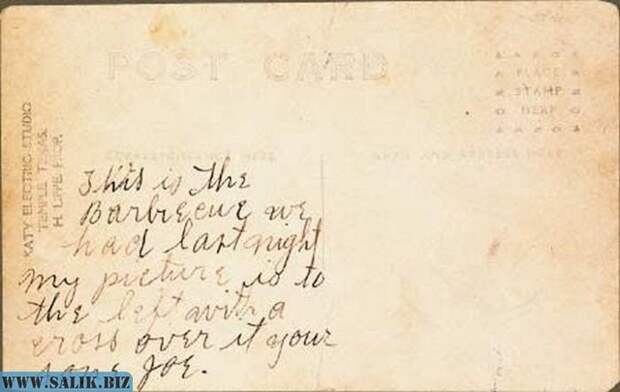 POST CARD
PLACE
STAMP
HERE
CORRESPONDENCE HERE
NAME AND ADDRESS HERE
KATY ELECTRIC STUDIO
TEMPLE TEXAS.
H. LIPPE PROP.
This is the
Barbecue we
had last night
my picture is to
the left with a
cross over it your
sone Joe.
WWW.SALIK.BIZ